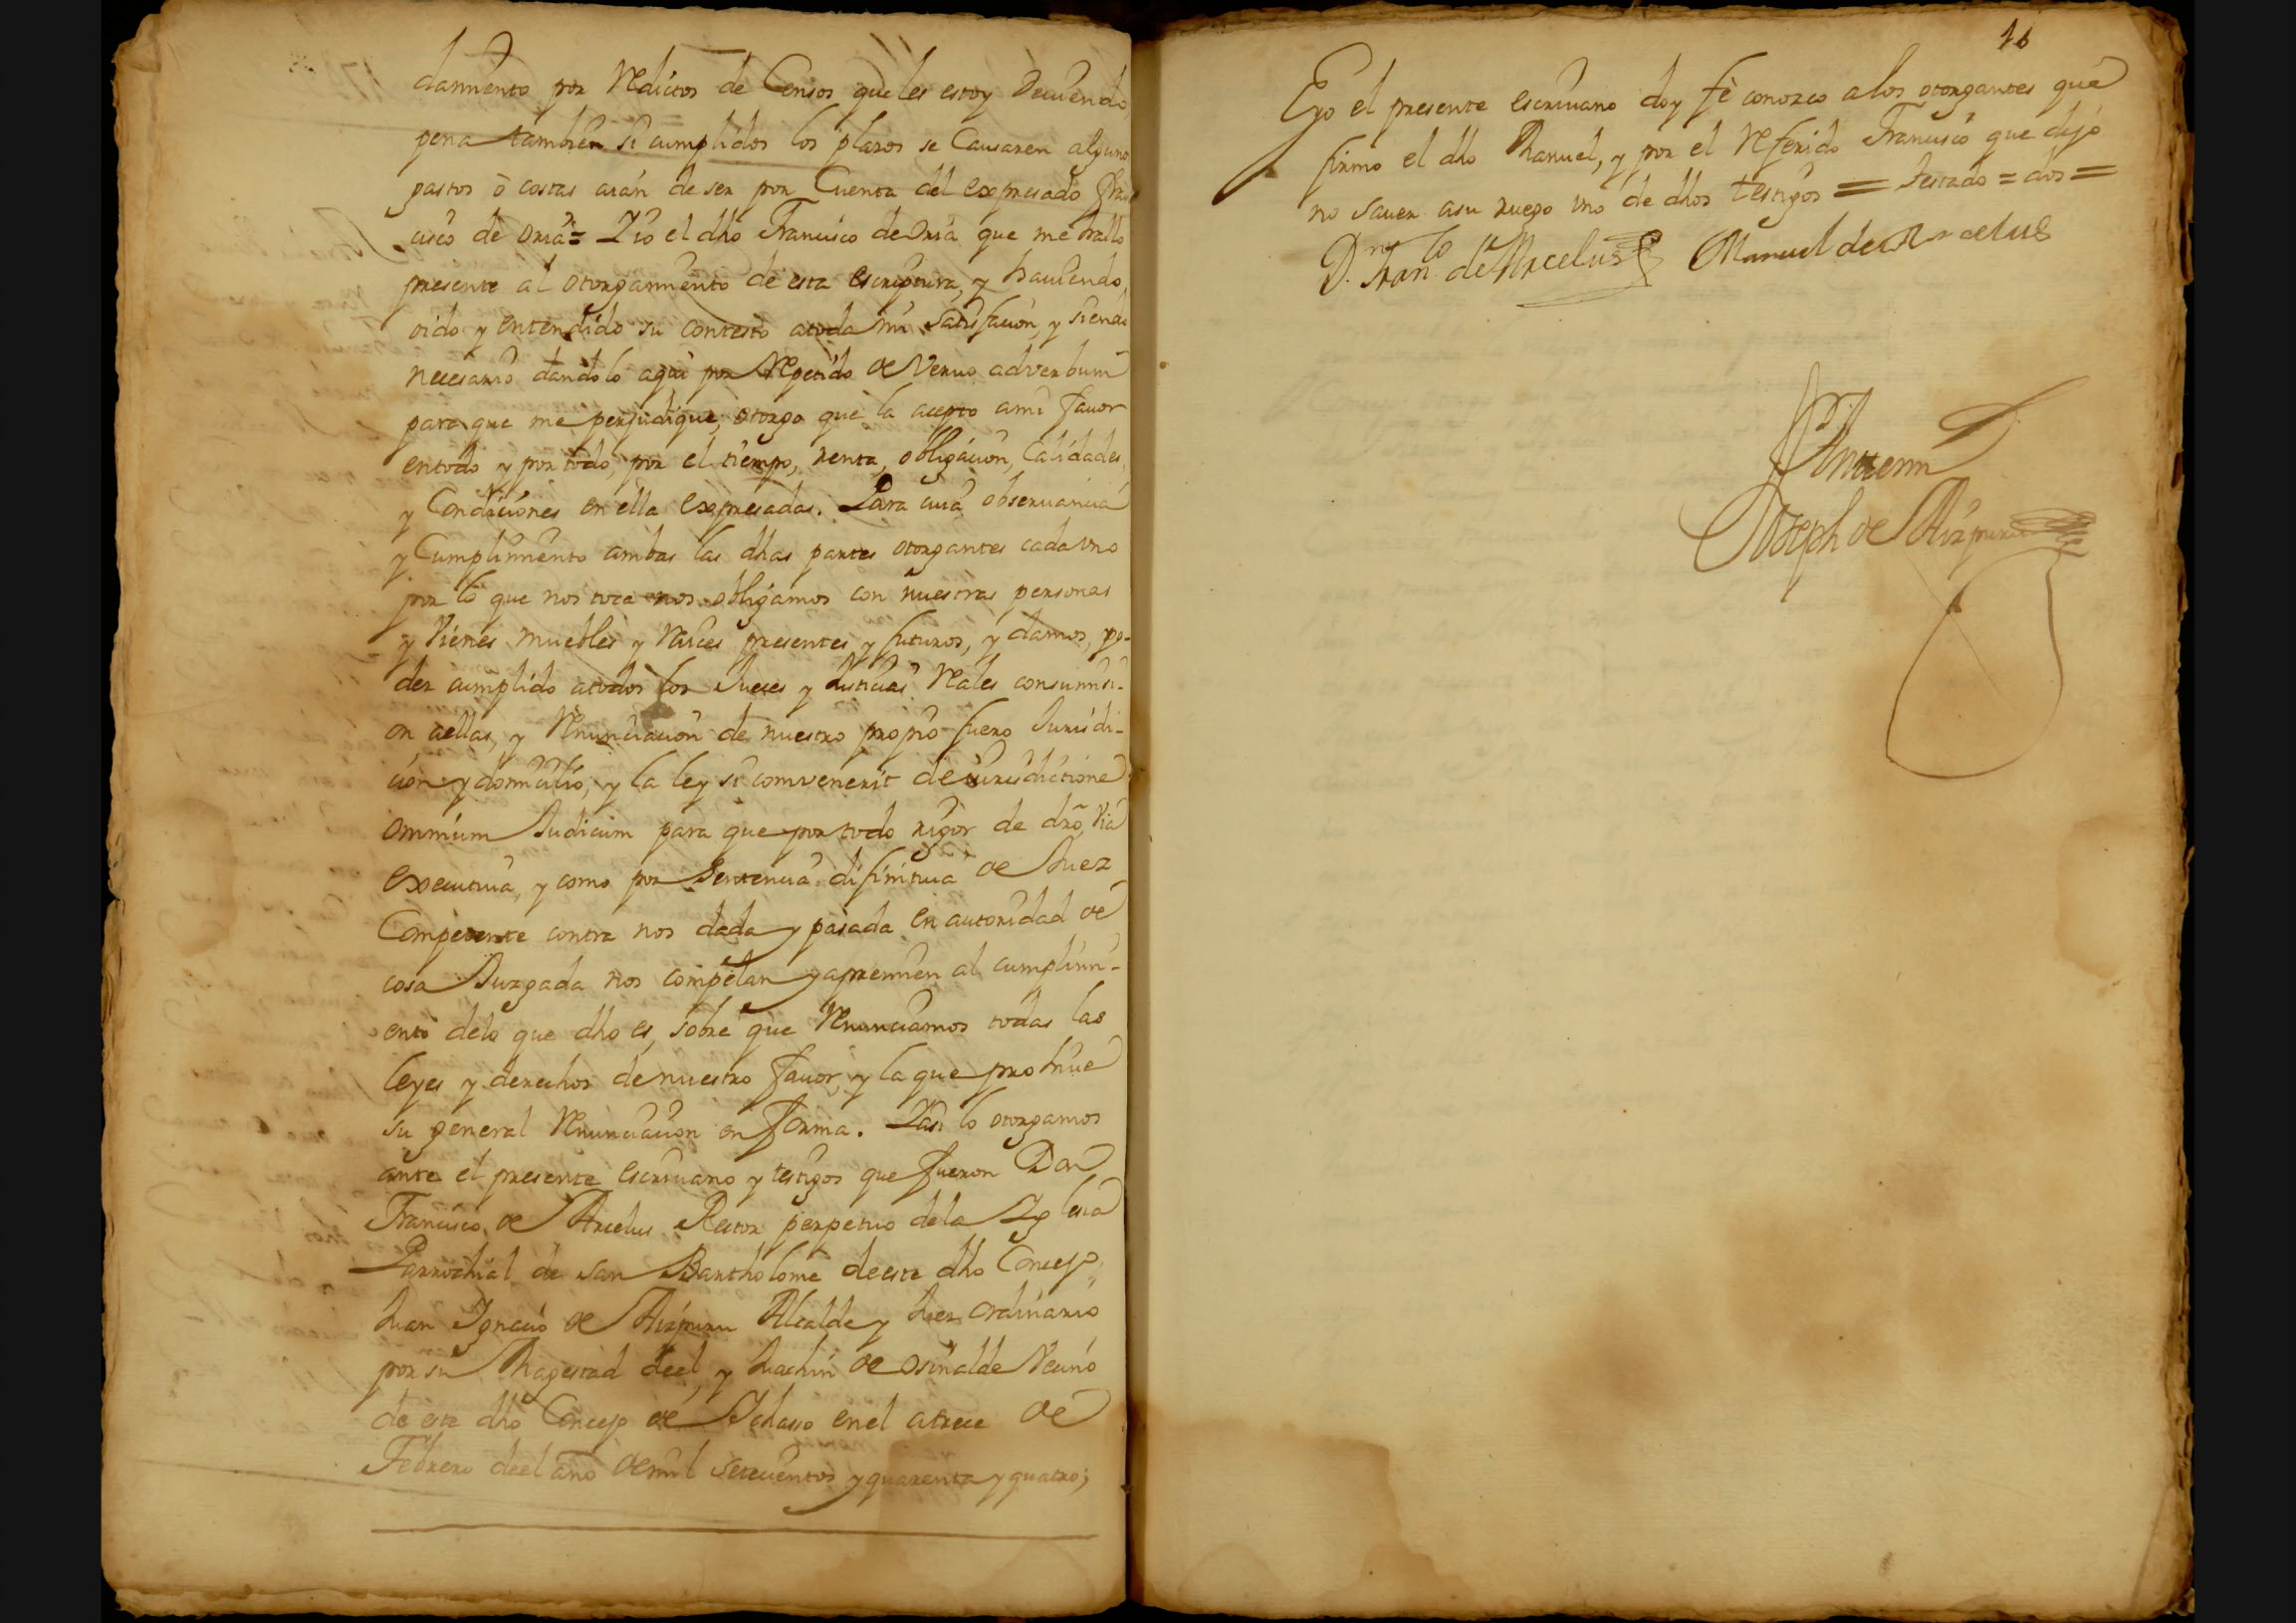 damiento por Reditos de Censos que les estoy deuiendo,
pena tambien si cumplidos los plazos se Causaren algunos
gastos ò costas aian de ser por Cuenta del expresado Fran
cisco de Oria = Y io el dho Francisco de Oria que me hallo
presente al otorgamiento de esta escriptura, y hauiendo
oido y entendido su contexto atoda mi satisfacion, y siendo
necesario dandolo aqui por Repetido de Veruo adverbum
para que me perjudique, otorgo que la acepto ami fauor
entodo y por todo, por el tiempo, renta, obligacion, Calidades,
y Condiciones en ella expresadas. Para cuia obseruancia
y Cumplimiento ambas las dhas partes otorgantes cada vno
por lo que nos toca nos obligamos con nuestras personas
y Vienes muebles y Raices presentes y futuros, y damos po-
der cumplido atodos los Jueces y Justicias Reales consumisi-
on aellas, y Renunciacion de nuestro propio fuero Jurisdi-
cion y domicilio, y la ley si comvenerit de iurisdictione
omnium Judicum para que por todo rigor de dro, Via
executiua, y como por Sentencia difinitiua de Juez
Competente contra nos dada y pasada en autoridad de
cosa Juzgada nos compelan y apremien al cumplimi-
ento delo que dho es, sobre que Renunciamos todas las
leyes y derechos de nuestro fauor, y la que prohiue
su general Renunciacion en forma. Y asi lo otorgamos
ante el presente escriuano y testigos que fueron Don
Francisco de Arcelus Rector perpetuo dela Yglesia
Parrochial de San Bartholome de este dho Concejo,
Juan Ignacio de Aizpuru Alcalde y Juez ordinario
por su Magestad deel, y Juachin de Osinalde Vecino
de este dho Concejo de Ychaso en el atrece de
Febrero deel año demil setecientos y quarenta y quatro;
16
E yo el presente escriuano doy fè conozco alos otorgantes que
firmo el dho Manuel, y por el Referido Francisco que dijo
no sauer asu ruego vno de dhos testigos = testado = dos =
D.n Fran.co de Arcelus Manuel de Arcelus
Ante mi
Joseph de Aizpuru